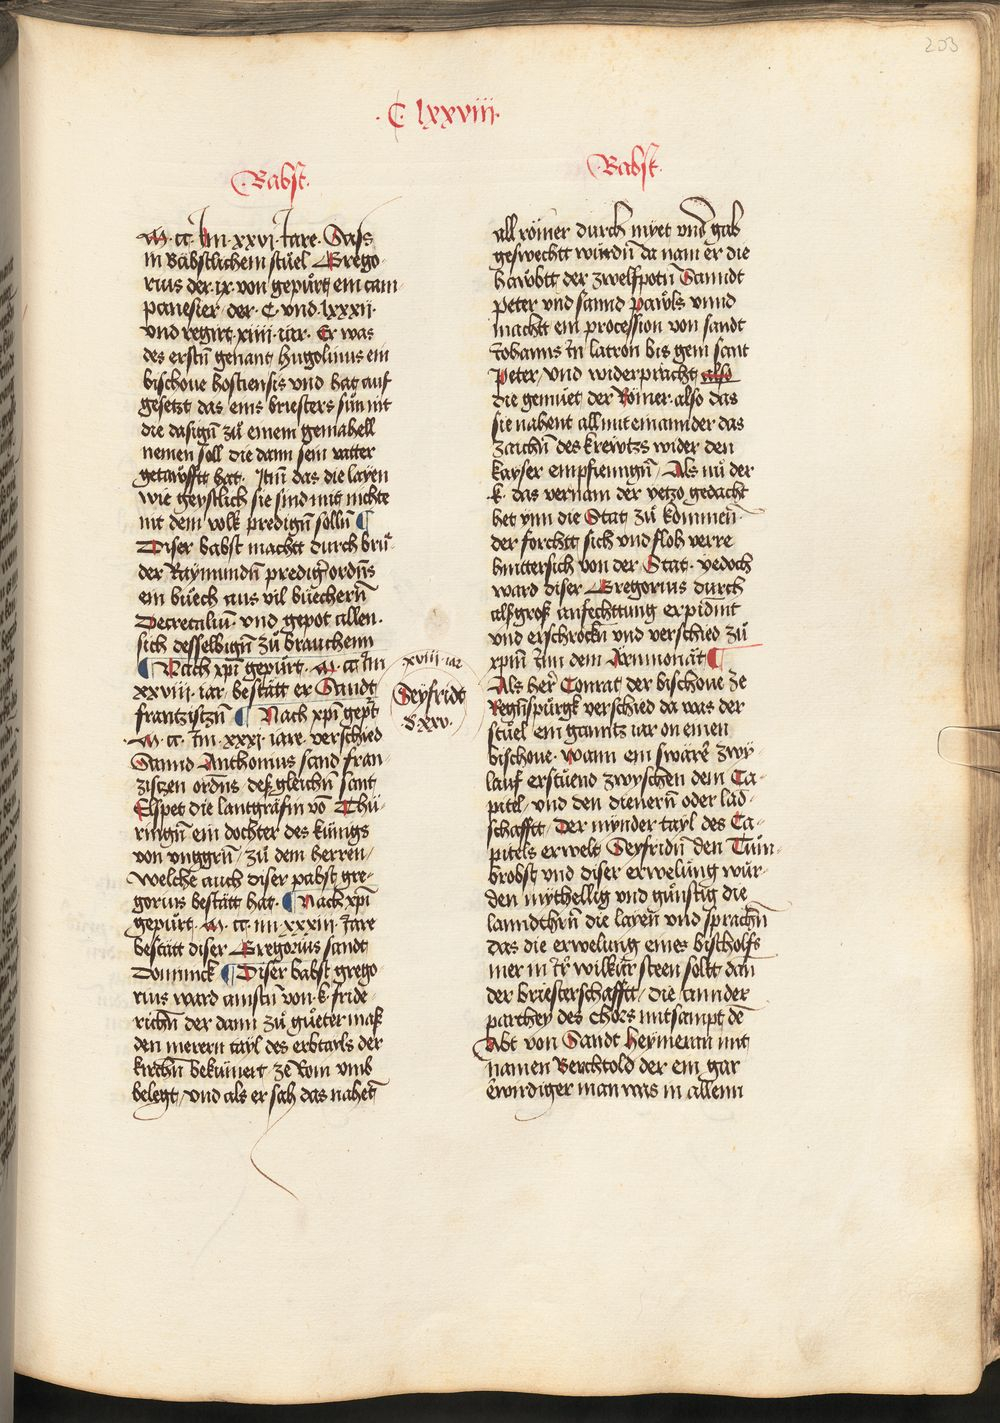 203
·C lxxviii·
·Babst·
M·cc·Im·xxvi·Jare·Sass
in Bäbstlichem stüel Grego-
rius der·ix·von gepürt ein cam-
panesier/der·C·vnd·lxxxii·
vnd regirt·xiiii·iar·Er was
des erstn̄ genant hugolinus ein
bischoue hostiensis vnd hat auf
gesetzt das eins briesters sün nit
die dasigñ zů einem gemahell
nemen soll die dann sein vatter
getawfft hat·Itm̄ das die layen
wie geystlich sie sind mit nichte
mit dem volk predigñ sollñ ¶
Diser babst macht durch brů-
der Raymundñ predig̃ ordñs
ein bůech aus vil bůechern̄
Decretaliū·vnd gepot allen·
sich desselbigñ zů brauchenn
¶ Nach xpī gepürt·M·cc·Im
xxviii·iar·bestätt er Sandt
frantzistzn̄ ¶ Nach xpī gepr̄t
·M·cc·Im·xxxi·iare·verschied
Sannd Anthonius sand fran-
zistzen ordñs desgleichñ sant
Elspet die lantgräfin vō Thü-
ringñ ein dochter des künigs
von vnggrñ/zů dem herren/
welche auch diser pabst gre-
gorius bestätt hat·¶ Nach xpī
gepürt·M·cc·im xxxiii·Jare
bestätt diser Gregorius sandt
Dominick ¶ Diser babst grego-
rius ward amstn̄ von·k·fride-
richñ der dann zů gůeter mass
den merern tayl des erbtayls der
kirchñ bekümert·ze Rom vmb
belegt/vnd als er sah das nahet̄
xviii·iar
Seyfridt
d xxv·
·Babst·
all römer durch myet vnd gab
geswechtt würdn̄ da nam er die
hawbtt der zwelfpotn̄ Sanndt
peter vnd sannd pawls vnnd
machtt ein procession von sandt
Johanns Jn latron bis gein sant
Peter/vnd widerpracht also
die gemuet der Römer·also das
sie nahent all miteinannder das
zaichñ des krewtzs wider den
kayser empfienngñ/Als nů der
·k·das vernam der yetzo gedacht
het ynn die Stat zů kommen̄·
der forchtt sich vnd floh verre
hinttersich von der Stat·yedoch
ward diser Gregorius durch
alsgross anfechttung erpidmt
vnd erschrockñ vnd verschied zů
xpm̄ Im dem Aennmonāt ¶
Als her̄ Conrat der bischoue ze
Regñspürgk verschied da was der
stüel ein ganntz iar on einen
bischoue·wann ein swäre zwy-
lauf erstüend zwyschen dem Ca-
pitel/vnd den dienern̄ oder lād-
schafftt/Der mynder tayl des Ca-
pitels erwelt Seyfridñ den Tům-
brobst vnd diser erwelung wůr-
den mythellig vnd gůnstig die
lanndthr̄n die layen̄ vnd sprachñ
das die erwelung eines bischolfs
mer in Ir̄ wilkür steen soltt dan
der briesterschafftt/die annder
parthey des chors mitsampt dē
Abt von Sandt heymeran mit
namen Berchtold der ein gar
erwirdiger man was in allenn